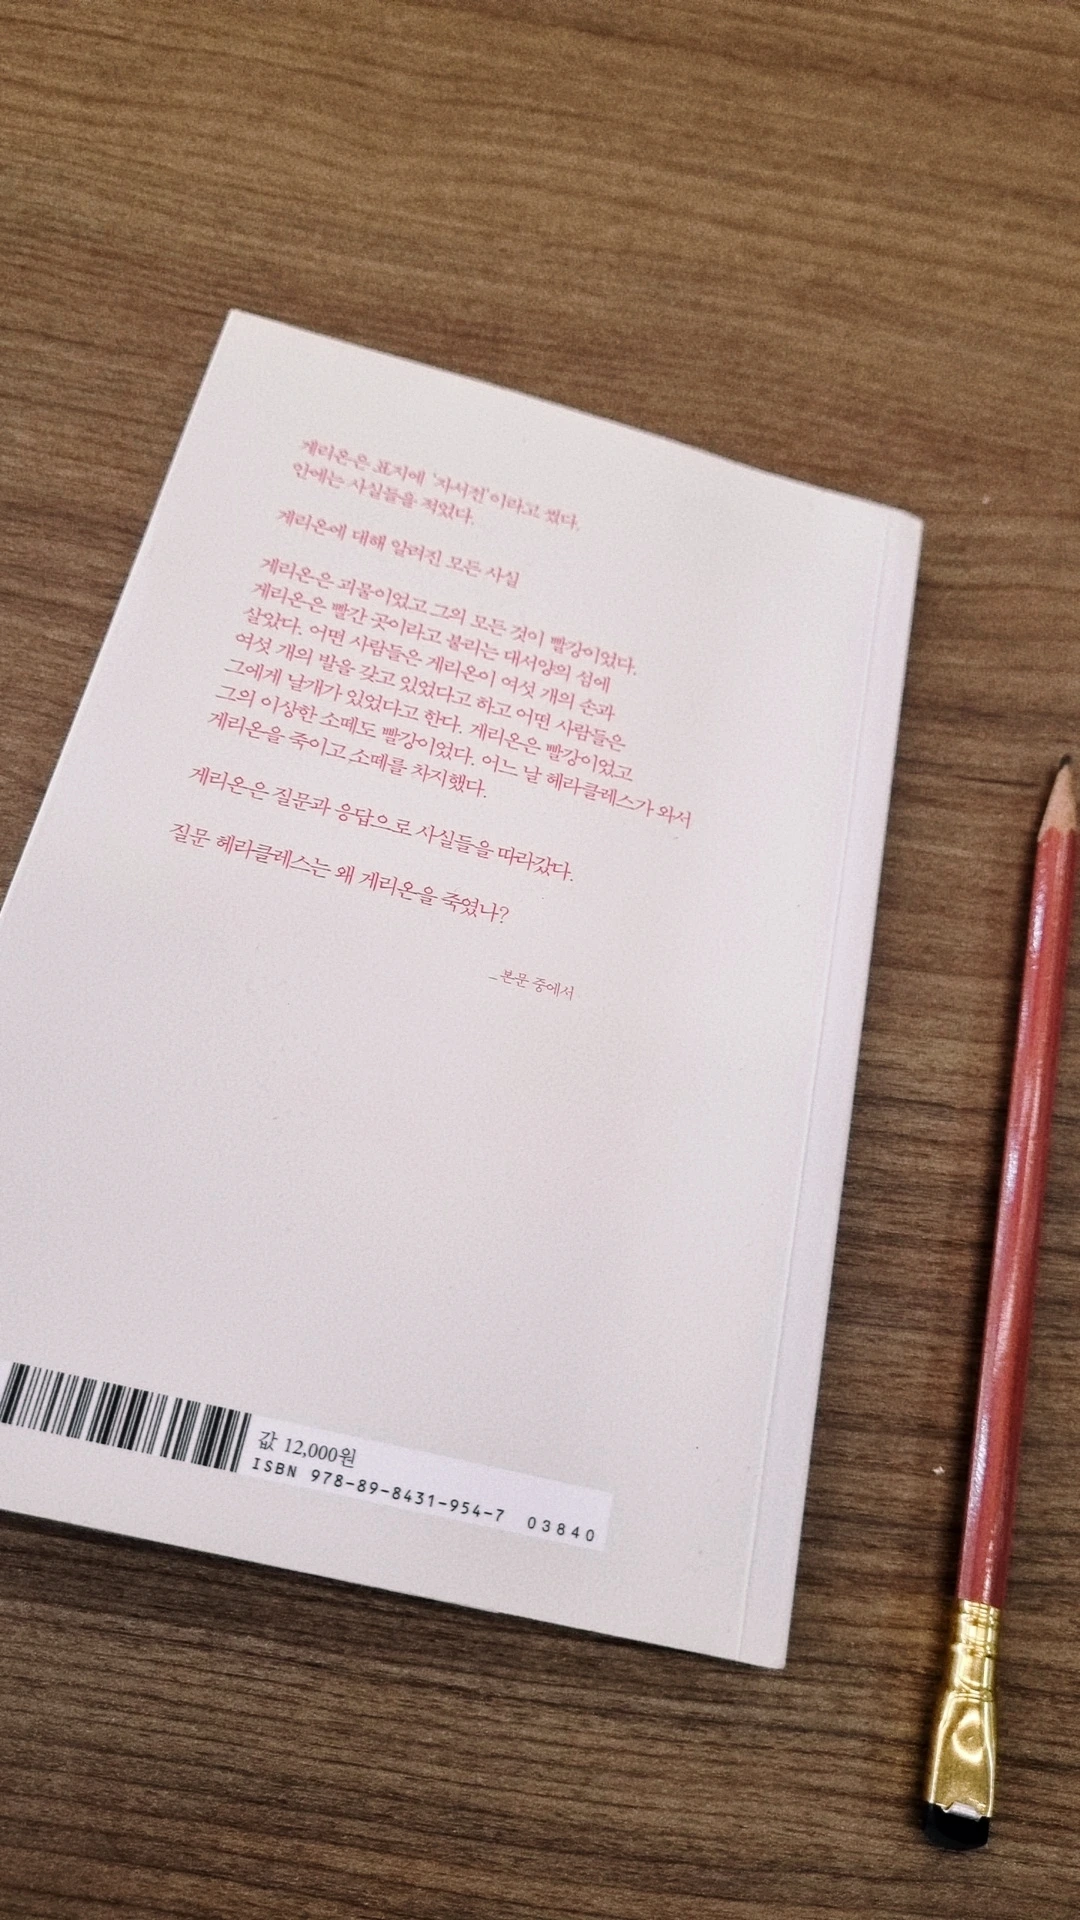 게리온은 표지에 '자서전'이라고 썼다.
안에는 사실들을 적었다.
게리온에 대해 알려진 모든 사실
게리온은 괴물이었고 그의 모든 것이 빨강이었다.
게리온은 빨간 곳이라고 불리는 대서양의 섬에
살았다. 어떤 사람들은 게리온이 여섯 개의 손과
여섯 개의 발을 갖고 있었다고 하고 어떤 사람들은
그에게 날개가 있었다고 한다. 게리온은 빨강이었고
그의 이상한 소떼도 빨강이었다. 어느 날 헤라클레스가 와서
게리온을 죽이고 소떼를 차지했다.
게리온은 질문과 응답으로 사실들을 따라갔다.
질문 헤라클레스는 왜 게리온을 죽였나?
_본문 중에서
값 12,000원
ISBN 978-89-8431-954-7 03840